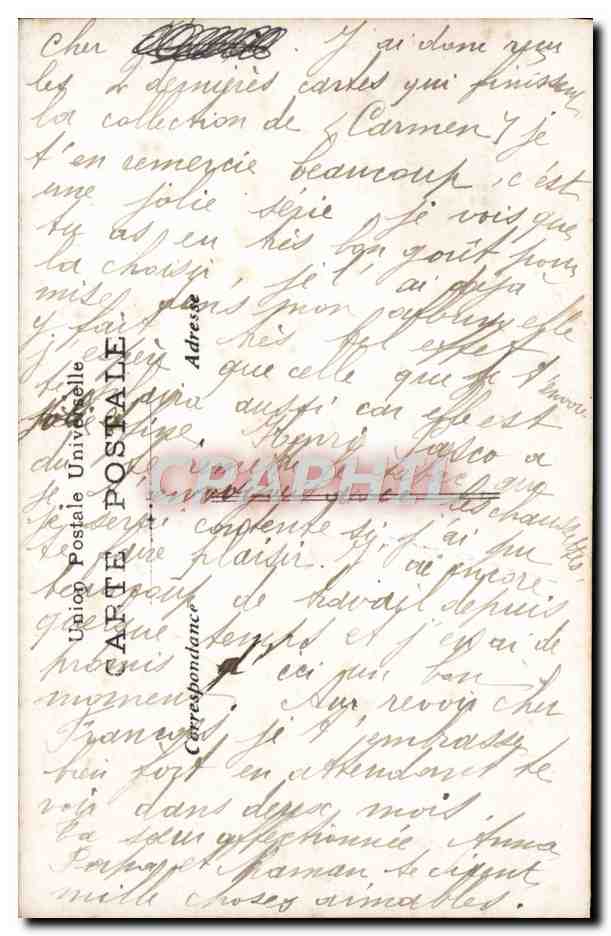 Cher . J'ai donc reçu
les 2 dernières cartes qui finissent
la collection de "Carmen" je
t'en remercie beaucoup, c'est
une jolie série je vois que
tu as eu très bon goût pour
la choisir, je l'ai déjà
mise dans mon album elle
y fait très bel effet
j'espère que celle que je t'envoie
te plaira aussi car elle est
jolie Henry a
du te
je t'envoyer les chaussettes
je serai contente si j'ai pu
te faire plaisir. J'ai encore
beaucoup de travail depuis
quelque temps et j'en ai de
promis d'ici un bon
moment. Aur revoir cher
François, je t'embrasse
bien fort en attendant te
voir dans deux mois
Ta sœur affectionnée Anna
Papa et Maman te disent
mille choses aimables.
Union Postale Universelle
CARTE POSTALE
Correspondance
Adresse
CPAPHIL